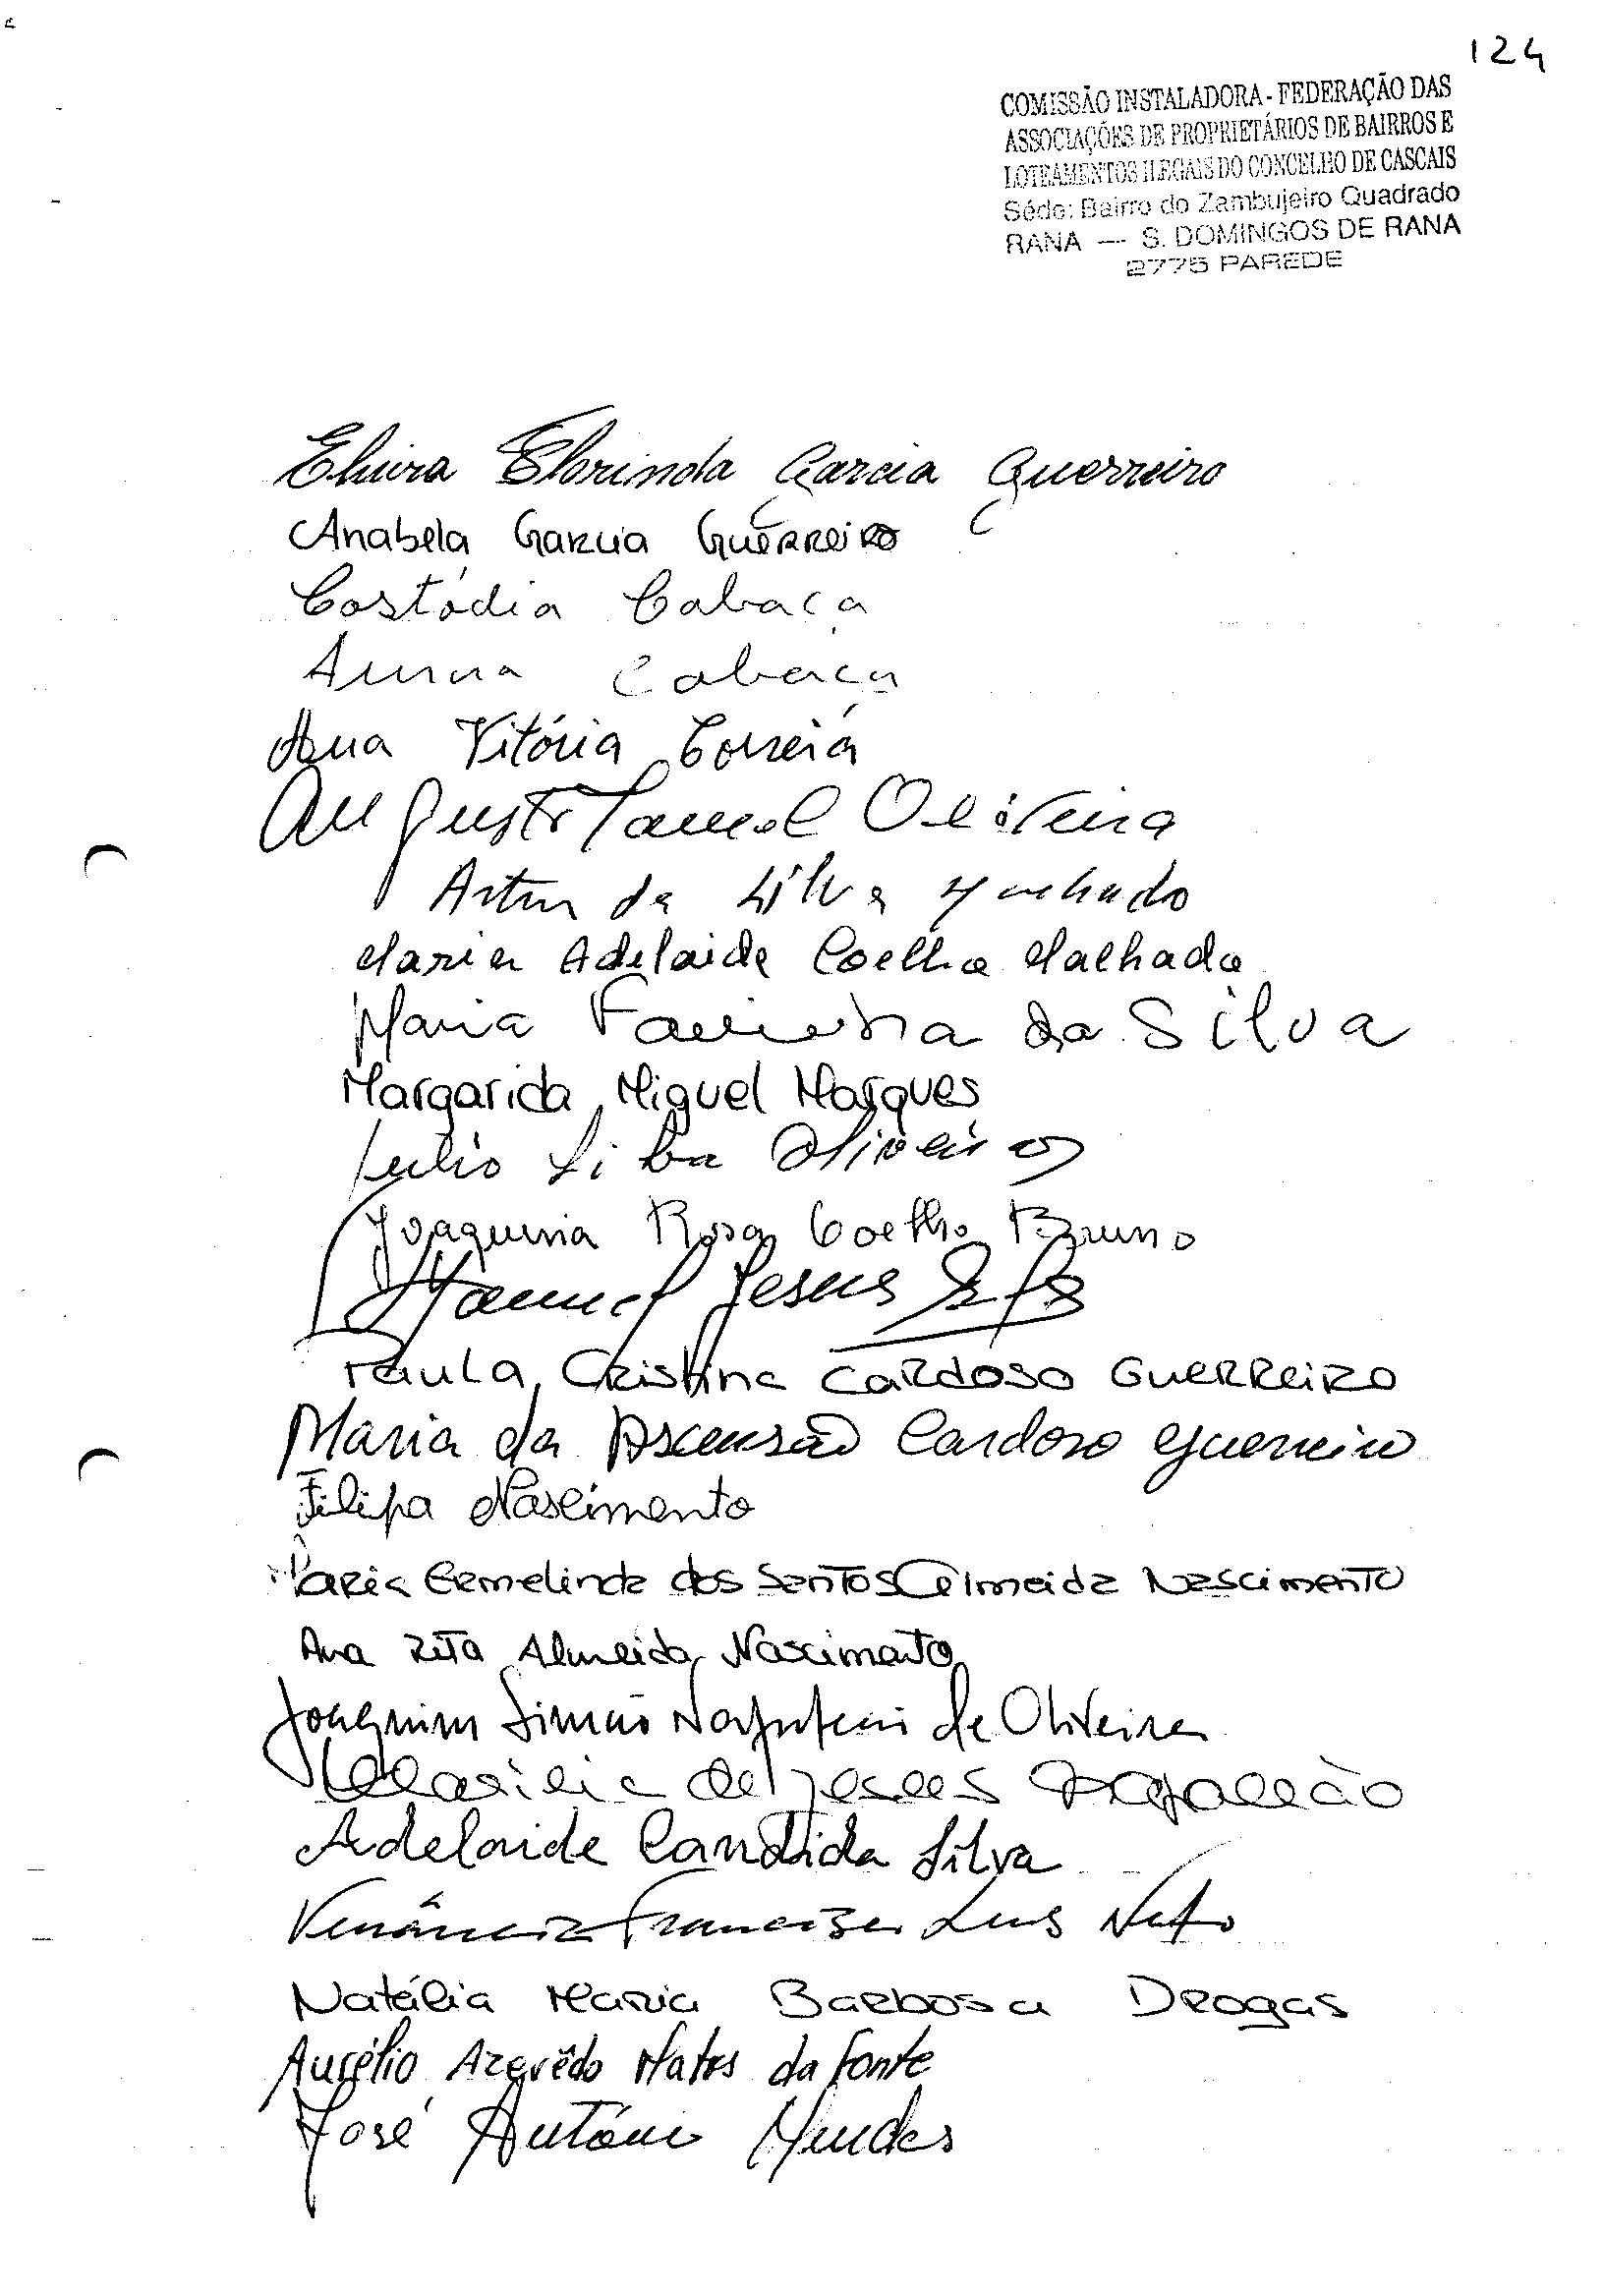 124
COMISSÃO INSTALADORA - FEDERAÇÃO DAS
ASSOCIAÇÕES DE PROPRIETÁRIOS DE BAIRROS E
LOTEAMENTOS ILEGAIS DO CONCELHO DE CASCAIS
Séde: Bairro do Zambujeiro Quadrado
RANA — S. DOMINGOS DE RANA
2775 PAREDE
Elvira Florinda Garcia Guerreiro
Anabela Garcia Guerreiro
Costódia Cabaça
Cabaça
Ana Vitória Correia
Augusto Oliveira
Artur da Silva Machado
Maria Adelaide Coelho Malhada
Maria da Silva
Margarida Miguel Marques
Julio Silva Oliveira
Joaquina Rosa Coelho Bruno
Manuel Jesus
Paula Cristina Cardoso Guerreiro
Maria da Ascensão Cardoso Guerreiro
Filipa Nascimento
Maria Ermelinda dos Santos Almeida Nascimento
Ana Rita Almeida Nascimento
Joaquim Simão de Oliveira
de Jesus
Adelaide Candida Silva
Venância Francisca Luis Neto
Natália Maria Barbosa Drogas
Aurélio Azevêdo Matos da Fonte
José António Mendes